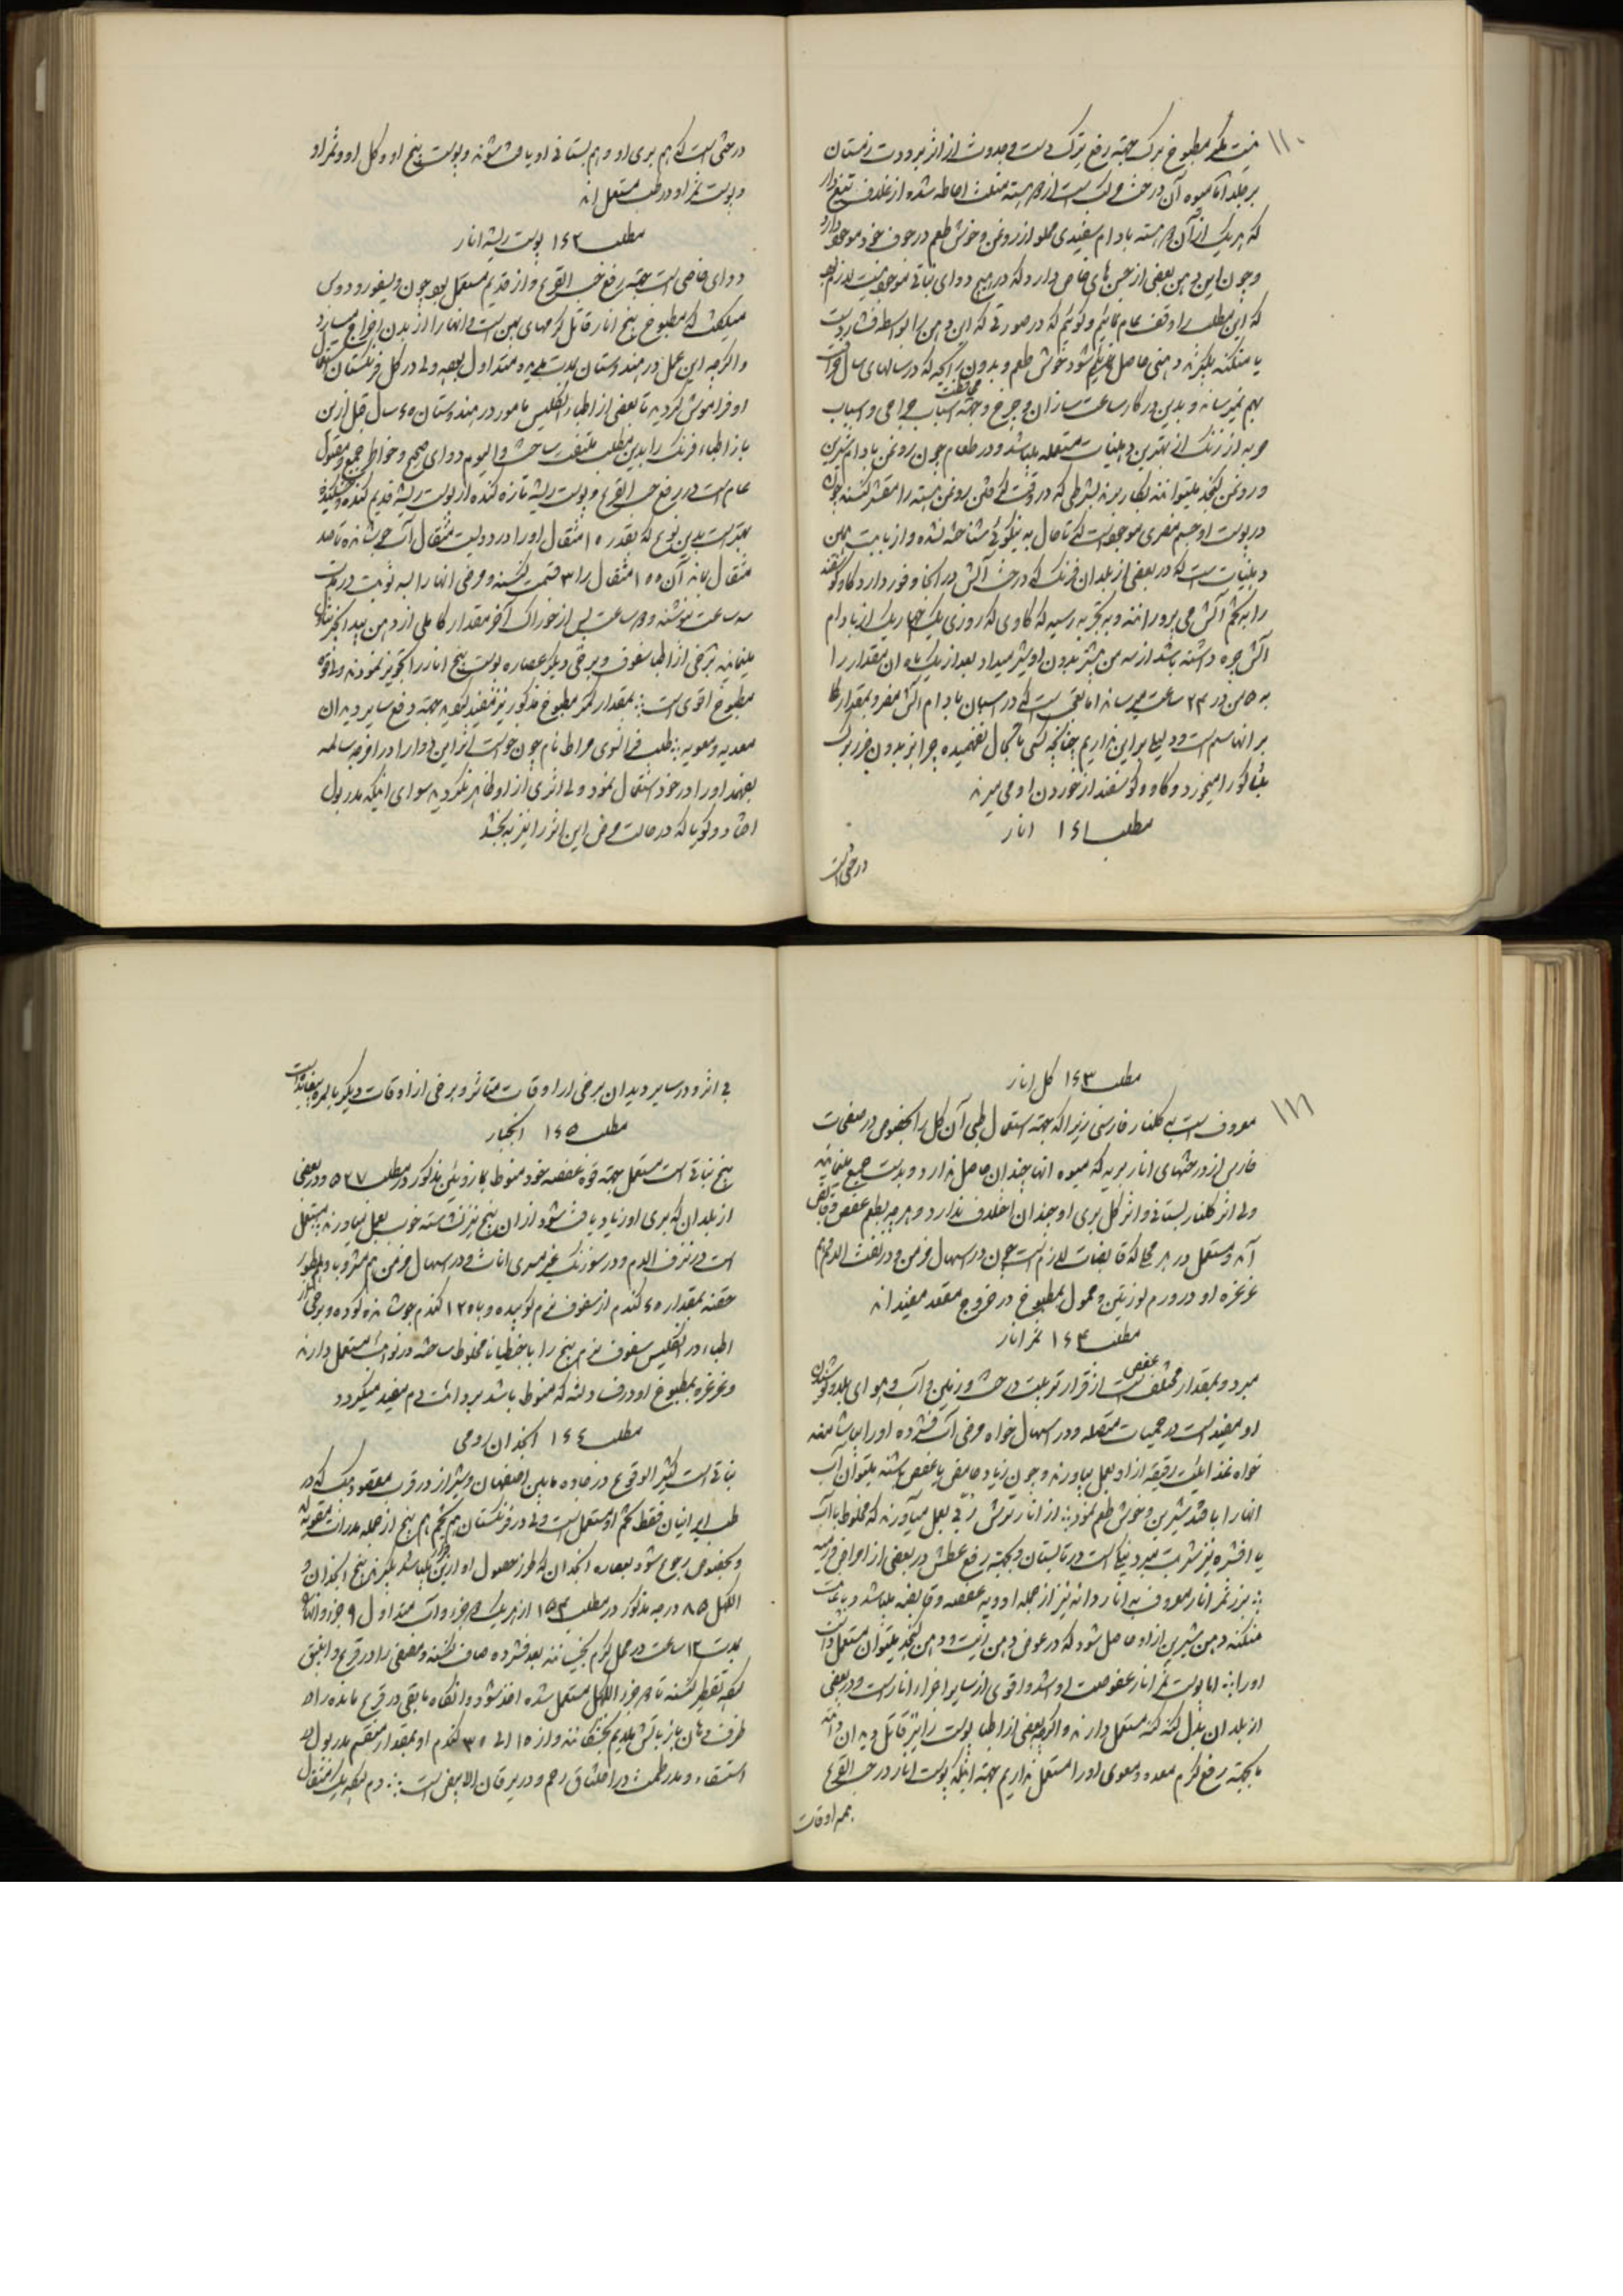 ۱۱۰
نیست مگر مطبوخ برک جهته رفع ترک دست و حدوث از اثر برودت زمستان
بر جلد اما میوه آن درخت مرکب است از هسته مثلث احاطه شده از غلاف تیغ دار
که هر یک از آن هسته بادام سفیدی مملو از روغن و خوش طعم در جوف خود موجود دارد
و چون این دهن بعضی از حسن های خاص دارد که در هیچ دوای نباتی موجود نیست لازم بود
که این مطلب را وقف عام نمائیم و گوئیم که در صورتی که این دهن را بواسطه فشار دست
یا منکنه بگیرند دهنی حاصل شود خوش طعم و بدون رائحه که در سالهای سال فساد
بهم نمیرساند و بدین در کار ساعت سازان و چرخ و جهته محافظت اسباب جراحی و اسباب
حربه از زنک از بهترین دهنیات مستعمله میباشد و در طعام چون روغن بادام شیرین
و روغن کنجد میتوانند بکار برند بشرطی که در وقت گرفتن روغن هسته را مقشر کنند چونکه
در پوست او جسم مضری موجود است که تا حال به نیکوئی شناخته نشده و از بابت همین
دهنیات است که در بعضی از بلدان فرنک که درخت آلش در آنجا وفور دارد گاو و گوسفند
را به تخم آلش می پرورانند و به تجربه رسیده که گاوی که روزی یک چهار یک از بادام
آلش جره داشته باشد از سه من بیشتر بدون او شیر میداد بعد از یک ماه ان مقدار را
به ۵ من در ۲۴ ساعت میرساند اما نقص است که در اسبان بادام آلش مضر و بمقدار
بر انها سم است و دلیل بر این نداریم چنانچه کسی تا بحال نفهمیده چرا بز بدون ضرر برک
تنباکو را میخورد و گاو و گوسفند از خوردن او می میرند
مطلب ۱۴۱ انار
درختی است
درختی است که هم بری او و هم بستانی او یافت شود و پوست بیخ او و گل او و ثمر او
و پوست ثمر او در طب مستعمل اند
مطلب ۱۴۲ پوست ریشه انار
دوای خاصی است جهته رفع حب القرع و از قدیم مستعمل بود چون دیسقوریدوس
میگفت که مطبوخ بیخ انار قاتل کرمهای پهن است و انها را از بدن اخراج میسازد
و اگرچه این عمل در هندوستان مدت مدید متداول بوده ولی در کل فرنگستان استعمال
او فراموش گردید تا بعضی از اطباء انگلیس مامور در هندوستان ۴۵ سال قبل از این
باز اطباء فرنک را بدین مطلب ملتفت ساخت و الیوم دوای صحیح و خواطر جمع و مقبول
عام است در رفع حب القرع و پوست ریشه تازه کنده از پوست ریشه قدیم کنده و خشکیده
بهتر است بدین نوع که بقدر ۱۵ مثقال او را در دویست مثقال آب جوشانده تا صد
مثقال بماند آن ۱۰۰ مثقال را ۳ قسمت کنند و مریض انها را به سه نوبت در مدت
سه ساعت نوشند و ساعت پس از خوراک آخر مقدار کاملی از دهن بید انجیر تناول
مینمایند برخی از اطباء سفوف و برخی دیگر عصاره پوست بیخ انار را تجویز نمودند ولی قوه
مطبوخ اقوی است بمقدار کمتر مطبوخ مذکور نیز مفید بود جهته دفع سایر دیدان
معدیه و معویه طبیب فرانسوی مراط نام چون خواست اثر این دوا را در امزجه سالمه
بفهمد او را در خود استعمال نمود ولی اثری از او ظاهر نگردید سوای اینکه مدر بول
افتاد و گویا که در حالت مرض این اثر را نیز به بخشد
۱۱۱
مطلب ۱۴۳ گل انار
معروف است به گلنار فارسی زیرا که جهته استعمال طبی آن گل را بخصوص در صفحات
فارس از درختهای انار بریه که میوه انها چندان حاصل ندارد و بدست جمع مینمایند
ولی اثر گلنار بستانی و اثر گل بری او چندان اختلاف ندارد و هر دو بطعم عفص و قابض
آمد و مستعمل در هر محلی که قابضات لازم است چون در اسهال مزمن و در نفث الدم و هم
غرغره او در ورم لوزتین و حمول بمطبوخ در خروج مقعد مفیداند
مطلب ۱۴۴ ثمر انار
مبرد و بمقدار مختلف عفص است از قرار تربیت درخت و زمین و آب و هوای بلد و نوشیدن
او مفید است در حمیات متصله و در اسهال خواه مریض آب فشرده او را بیاشامند
خواه غذا بلیت رقیقه از او بعمل بیاورند و چون زیاد حامض یا عفص باشند میتوان آب
انها را با قند شیرین و خوش طعم نمود از انار ترش ربی بعمل میآورند که مخلوط با آب
یا افشره نیز شربت مبرد نیکی است در تابستان و بجهته رفع عطش در بعضی از امراض حاره
بزر ثمر انار معروف به انار دانه نیز از جمله ادویه عفصه و قابضه میباشد و باعانت
منکنه دهن شیرین از او حاصل شود که در عوض دهن زیت و دهن کنجد میتوان مستعمل داشت
او را اما پوست ثمر انار عفوصت او اشد و اقوی از سایر اجزاء انار است و در بعضی
از بلدان بدل کنه کنه مستعمل دارند و اگرچه بعضی از اطباء پوست را نیز قاتل دیدان دانند
ما بجهته رفع کرم معده و معوی او را مستعمل نداریم جهته اینکه پوست انار در حب القرع
همه اوقات
بی اثر و در سایر دیدان برخی از اوقات متاثر و برخی از اوقات دیگر بالمره بیفایده است
مطلب ۱۴۵ انجبار
بیخ نباتی است مستعمل جهته قوه عفصه خود منوط بمازوئین مذکور در مطلب ۵۲۷ و در بعضی
از بلدان که بری او زیاد یافت شود از ان بیخ نیز نشاسته خوب بعمل بیاورند مستعمل
است در نزف الدم و در سوزنک غیر مسری اناث و در اسهال مزمن هم مشروبا و هم بطور
حقنه بمقدار ۴۵ گندم از سفوف نرم کوبیده و با ۱۲۰ گندم جوشانده گوده و برخی از
اطباء در انگلیس سفوف نرم بیخ را با جنطیانا مخلوط ساخته در نوبات مستعمل دارند
و غرغره بمطبوخ او در فساد لثه که منوط باشد بردائت دم مفید میگردد
مطلب ۱۴۶ انجدان رومی
نباتی است کثیر الوقوع در جاده مابین اصفهان و شیراز در قرب مقصود بیک که در
طب ایرانیان فقط تخم او مستعمل است ولی در فرنگستان هم تخم هم بیخ از جمله مدرات مقویه اند
و بخصوص رجوع شود بعصاره انجدان که طرز حصول او از این قرار میباشد بگیرند بیخ انجدان و
الکهل ۸۵ درجه مذکور در مطلب ۱۵۳ از هر یک جزء و آب متداول ۹ جزء و انها را
بمدت ۱۲ ساعت در محل گرم بخیسانند بعد فشرده صاف کنند و مصفی را در قرع و انبیق
نهاده تقطیر کنند تا جزء الکهل مستعمل شده اخذ شود و انگاه مابقی در قرع مانده را در
ظرف دهان باز باتش ملایم بخشکانند و از ۱۵ الی ۳۰ گندم او بمقدار منقسم مدر بول در
استسقاء و مدر طمث در اختناق رحم و در یرقان الابیض است دم بکه یک مثقال